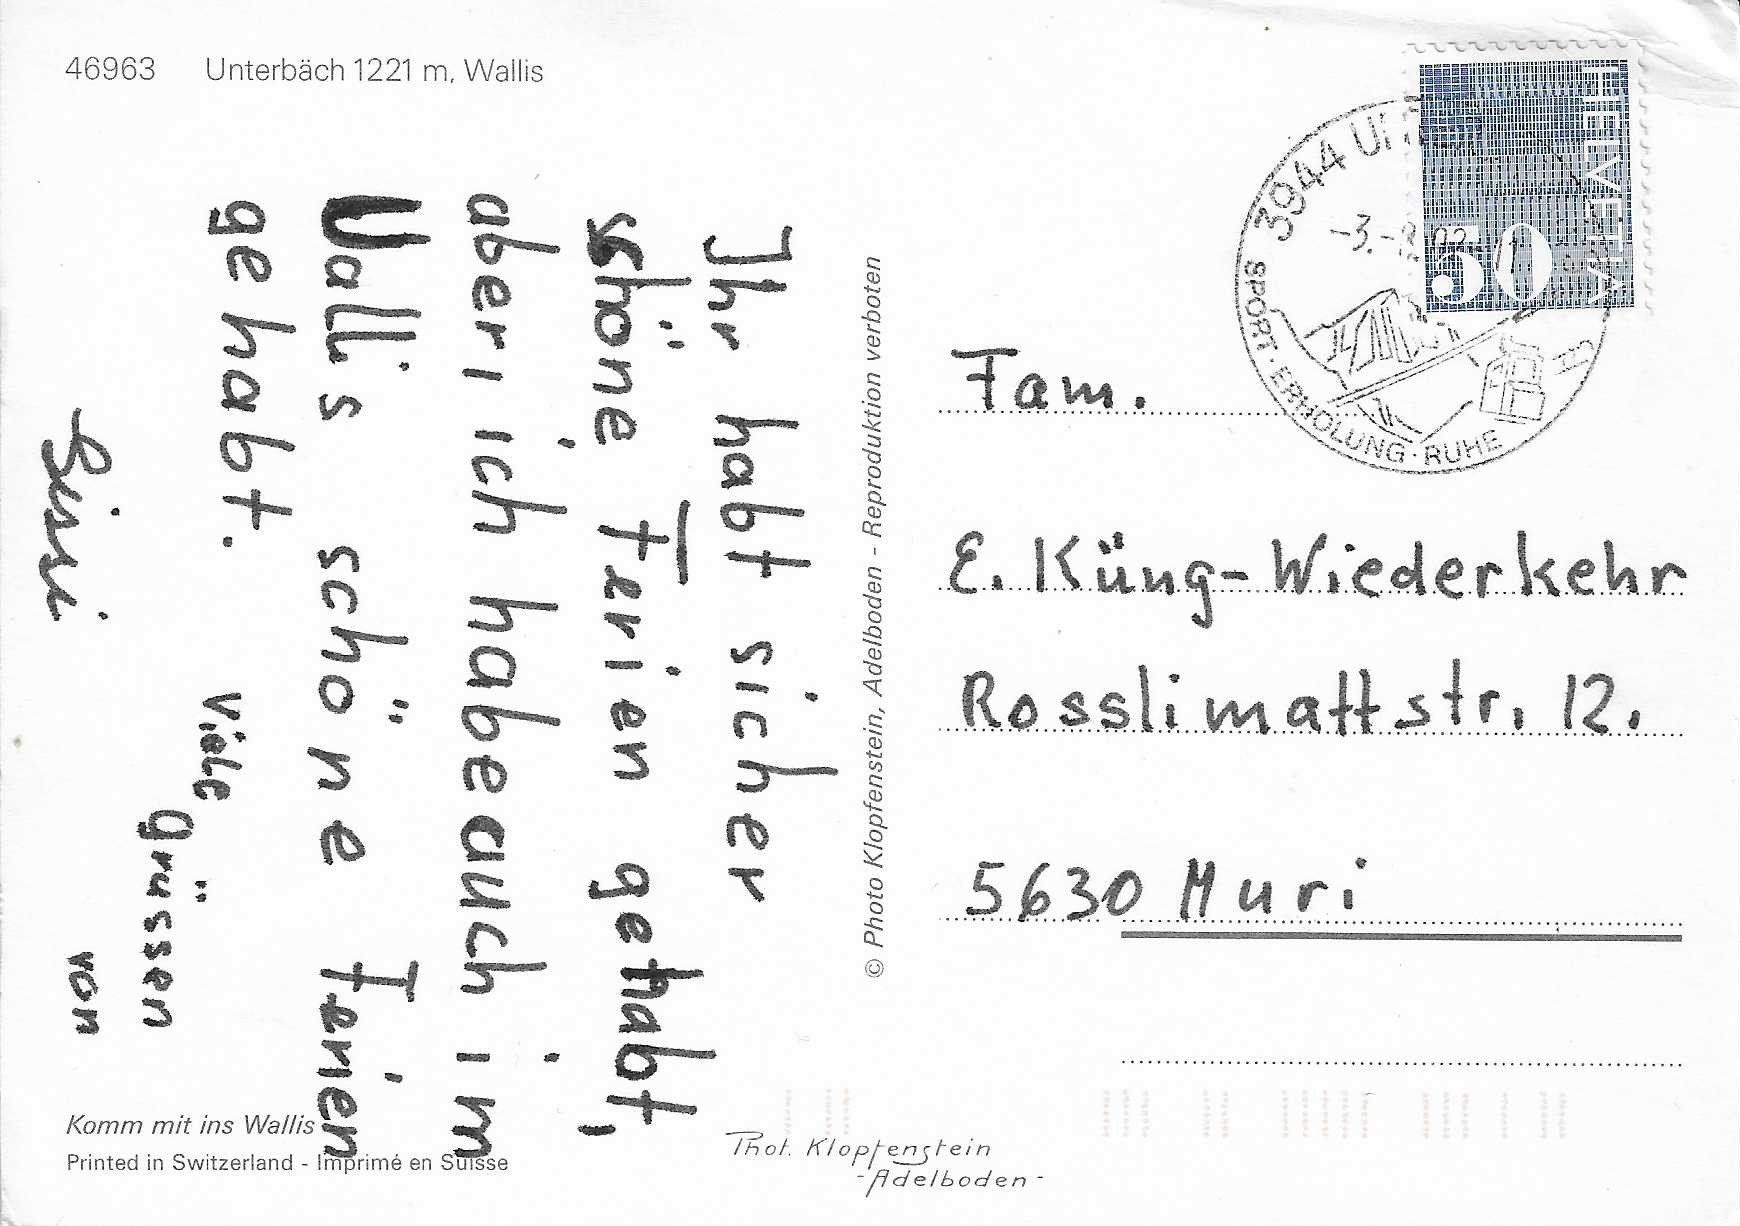 46963 Unterbäch 1221 m, Wallis
Ihr habt sicher
schöne Ferien gehabt,
aber ich habe auch im
Vallis schöne Ferien
gehabt.
Viele
grüssen
von
© Photo Klopfenstein, Adelboden - Reproduktion verboten
HELVETIA
50
3944
SPORT · ERHOLUNG · RUHE
Fam.
E. Küng-Wiederkehr
Rosslimattstr. 12.
5630 Muri
Komm mit ins Wallis
Printed in Switzerland - Imprimé en Suisse
Phot. Klopfenstein
-Adelboden-